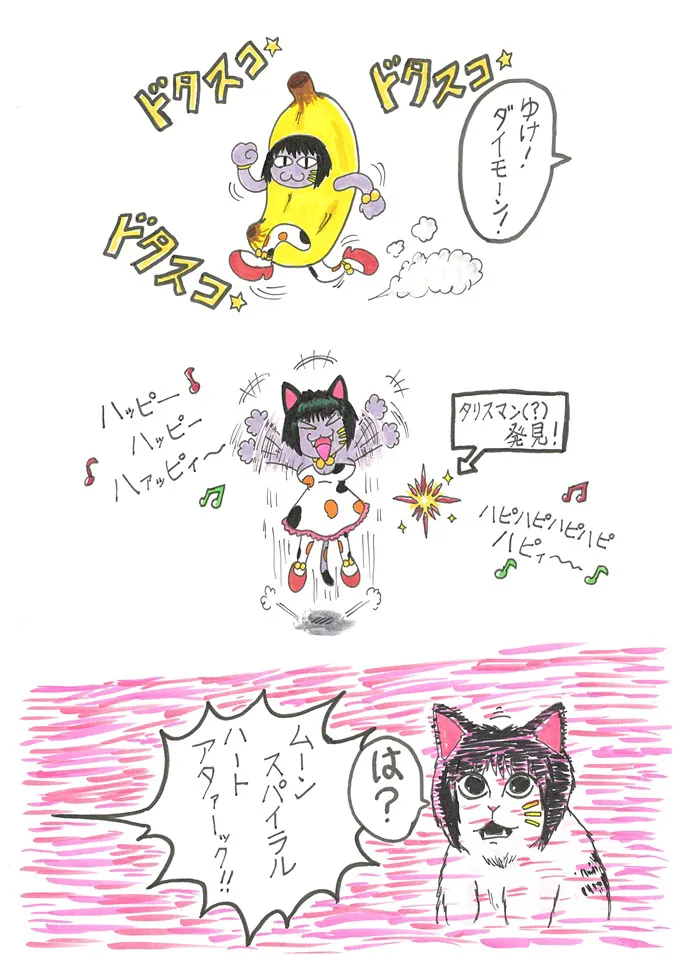 ドタスコ☆
ドタスコ☆
ゆけ!
ダイモーン!
ドタスコ☆
ハッピー♪
ハッピー
♪ハァッピィ〜♪
タリスマン(?)
発見!
ハピハピハピハピ
ハピィ〜〜
は?
ムーン
スパイラル
ハート
アタァーック!!